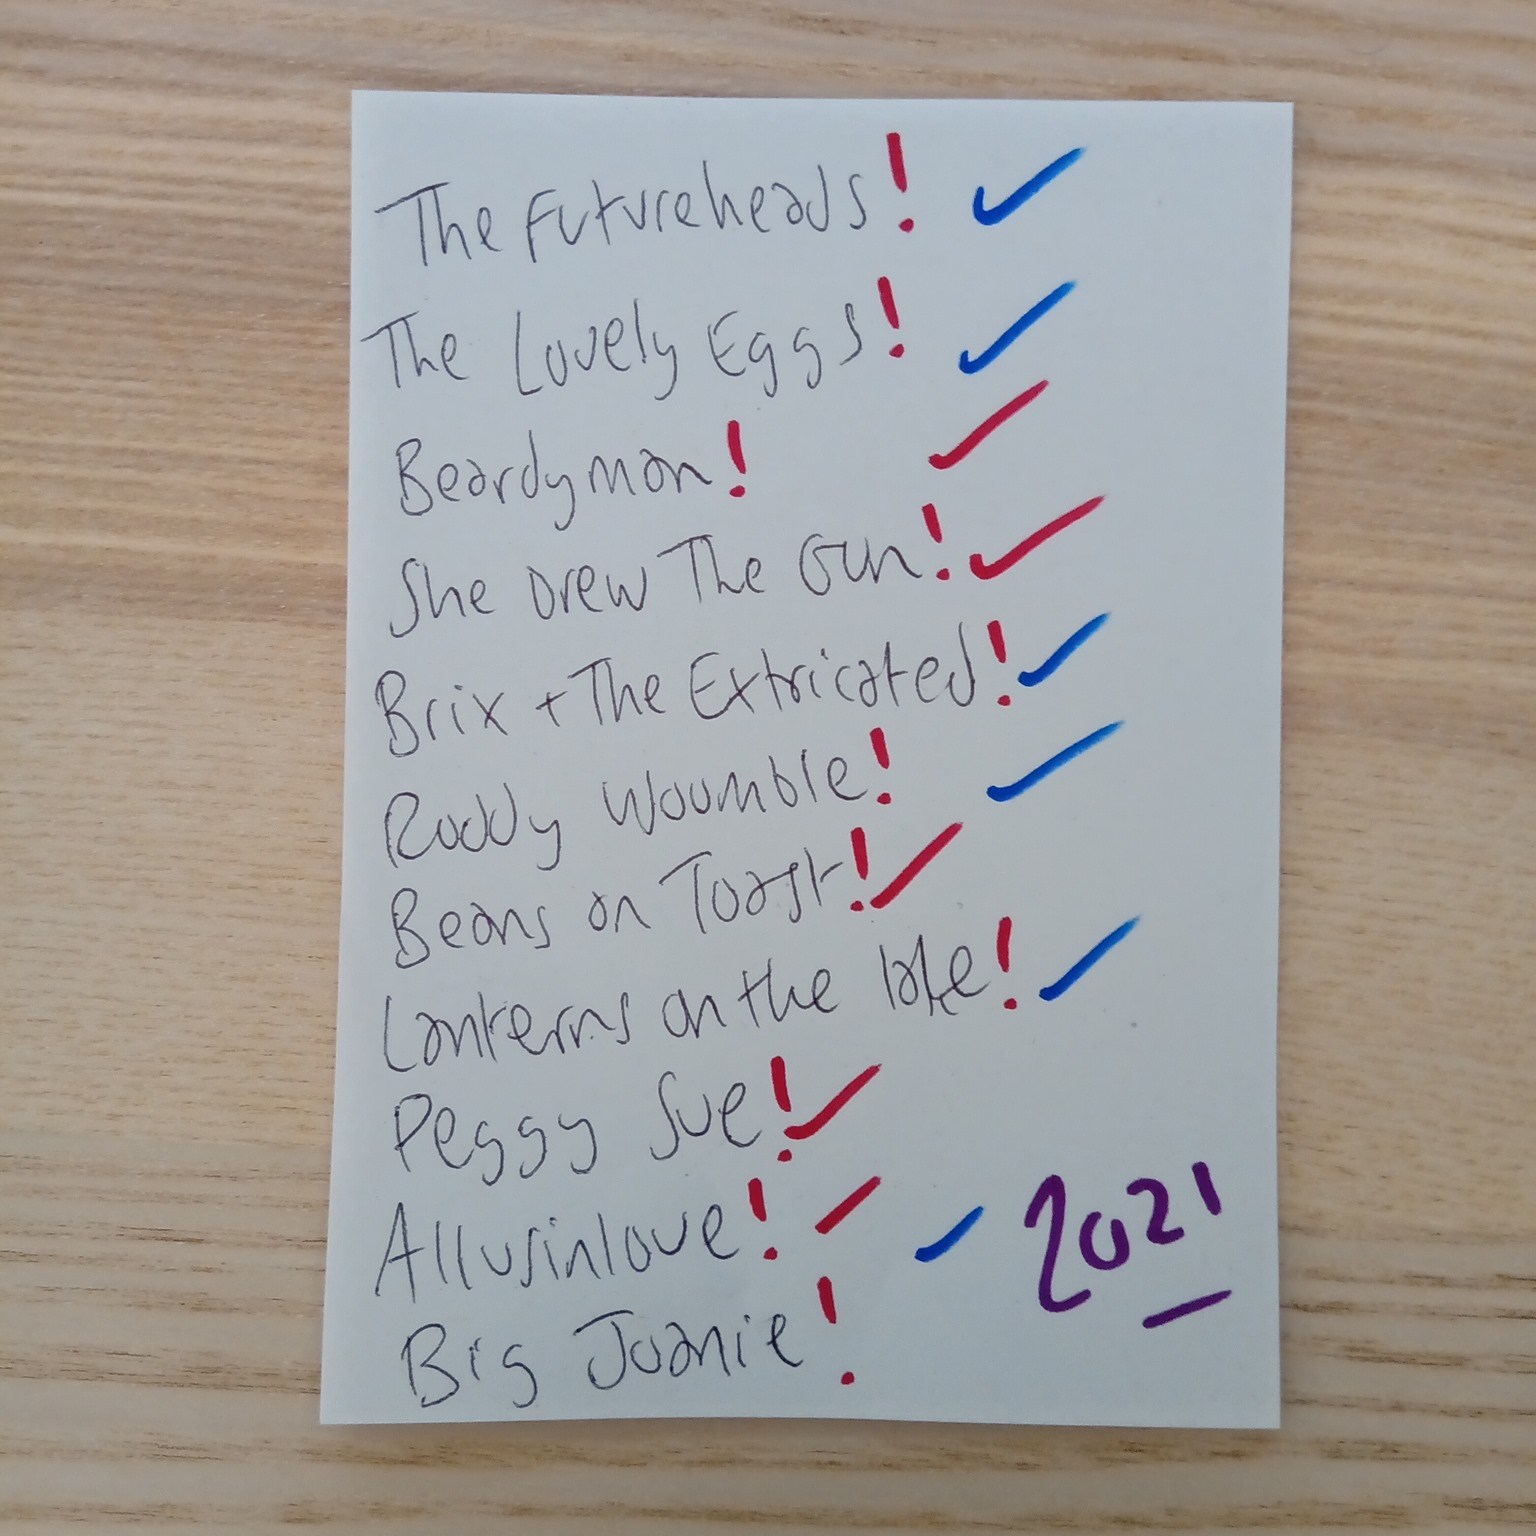 The Futureheads! ✓
The Lovely Eggs! ✓
Beardyman! ✓
She Drew The Gun! ✓
Brix + The Extricated! ✓
Roddy Woomble! ✓
Beans on Toast! ✓
Lanterns on the lake! ✓
Peggy Sue! ✓
Allusinlove! ✓ ✓
Big Joanie!
2021